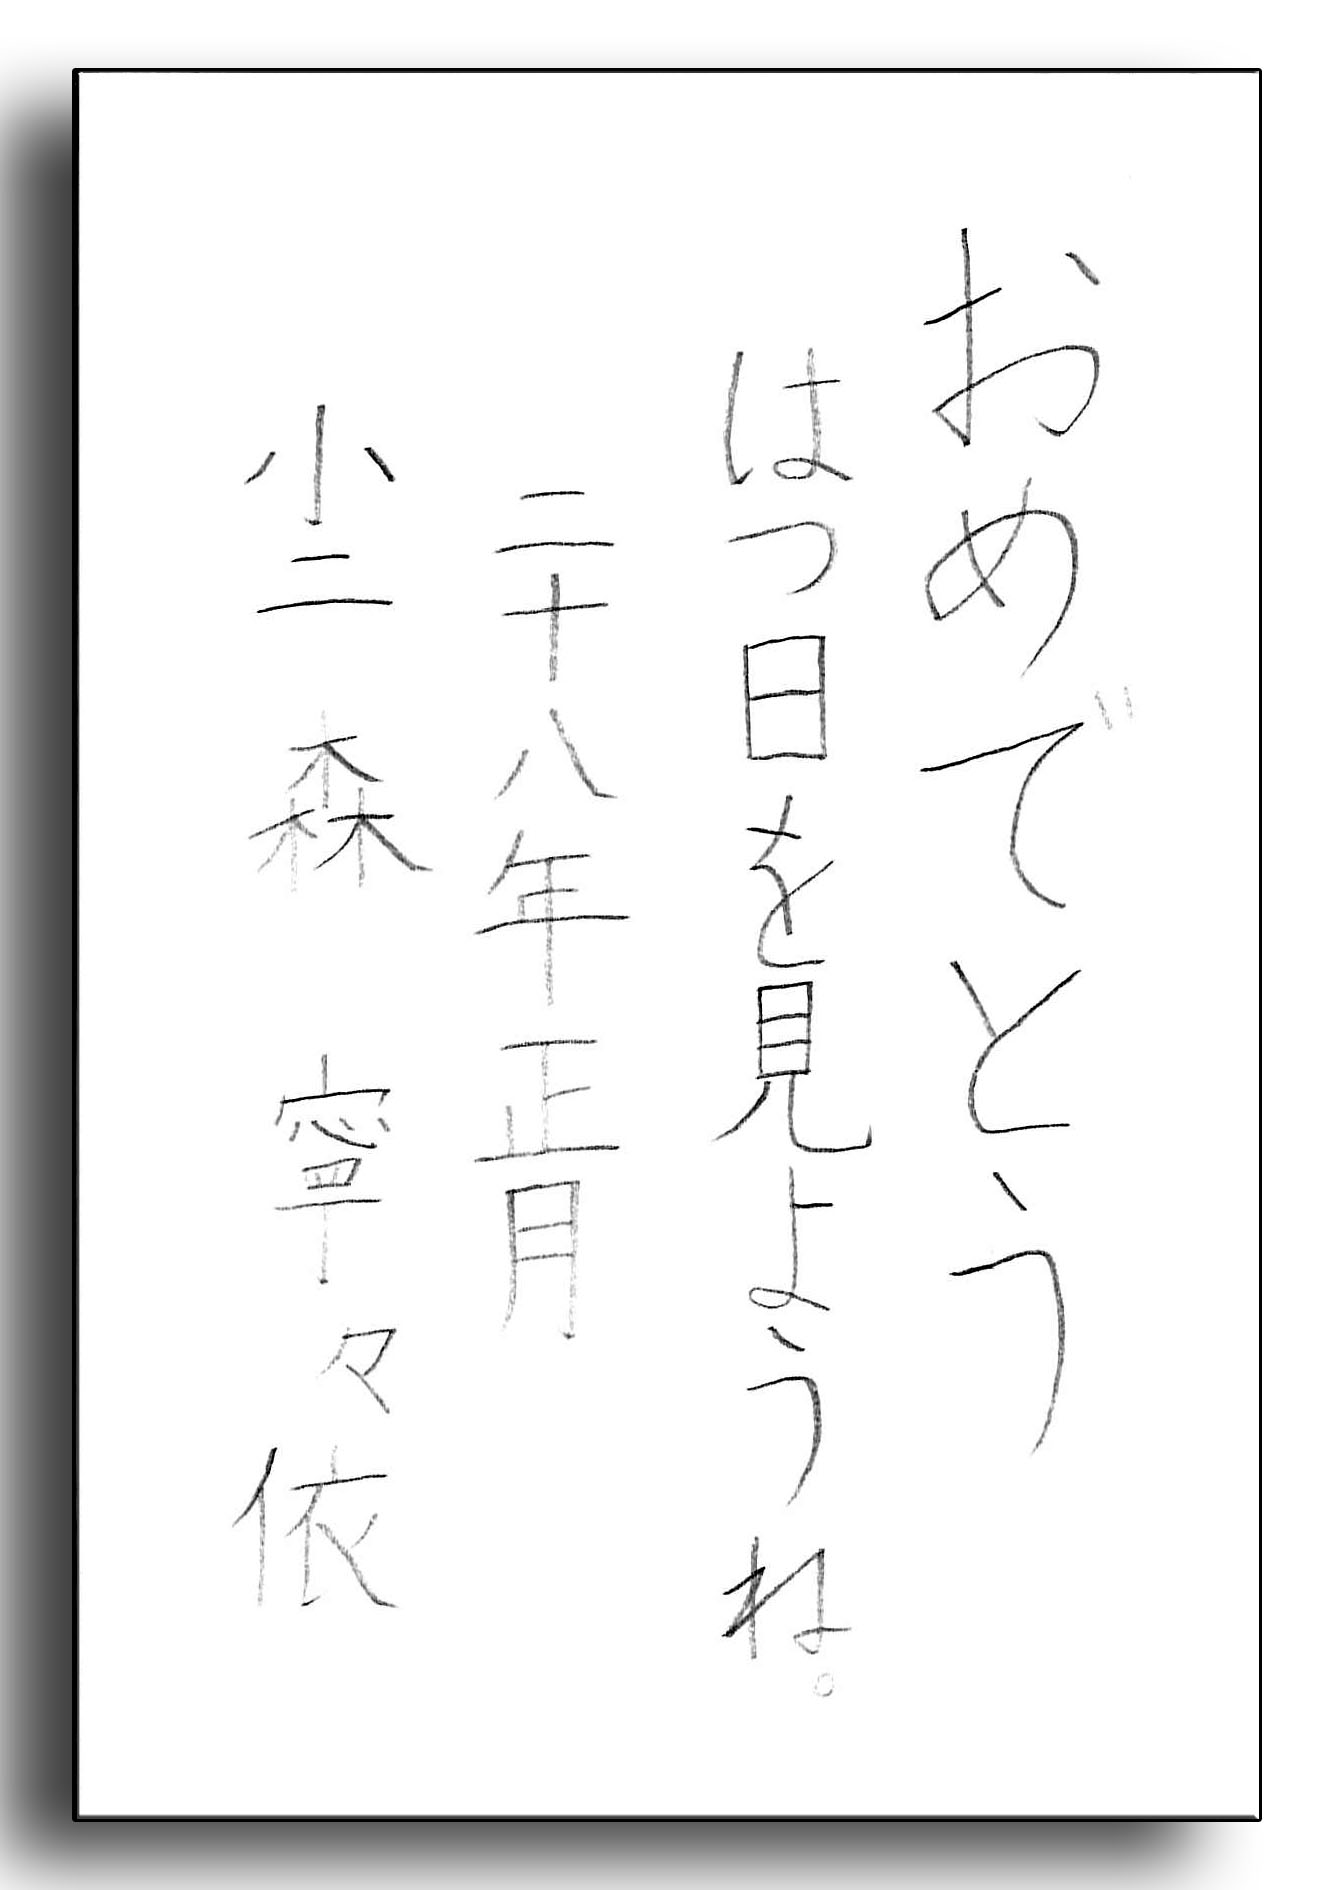 おめでとう
はつ日を見ようね。
二十八年正月
小二 森 寧々依